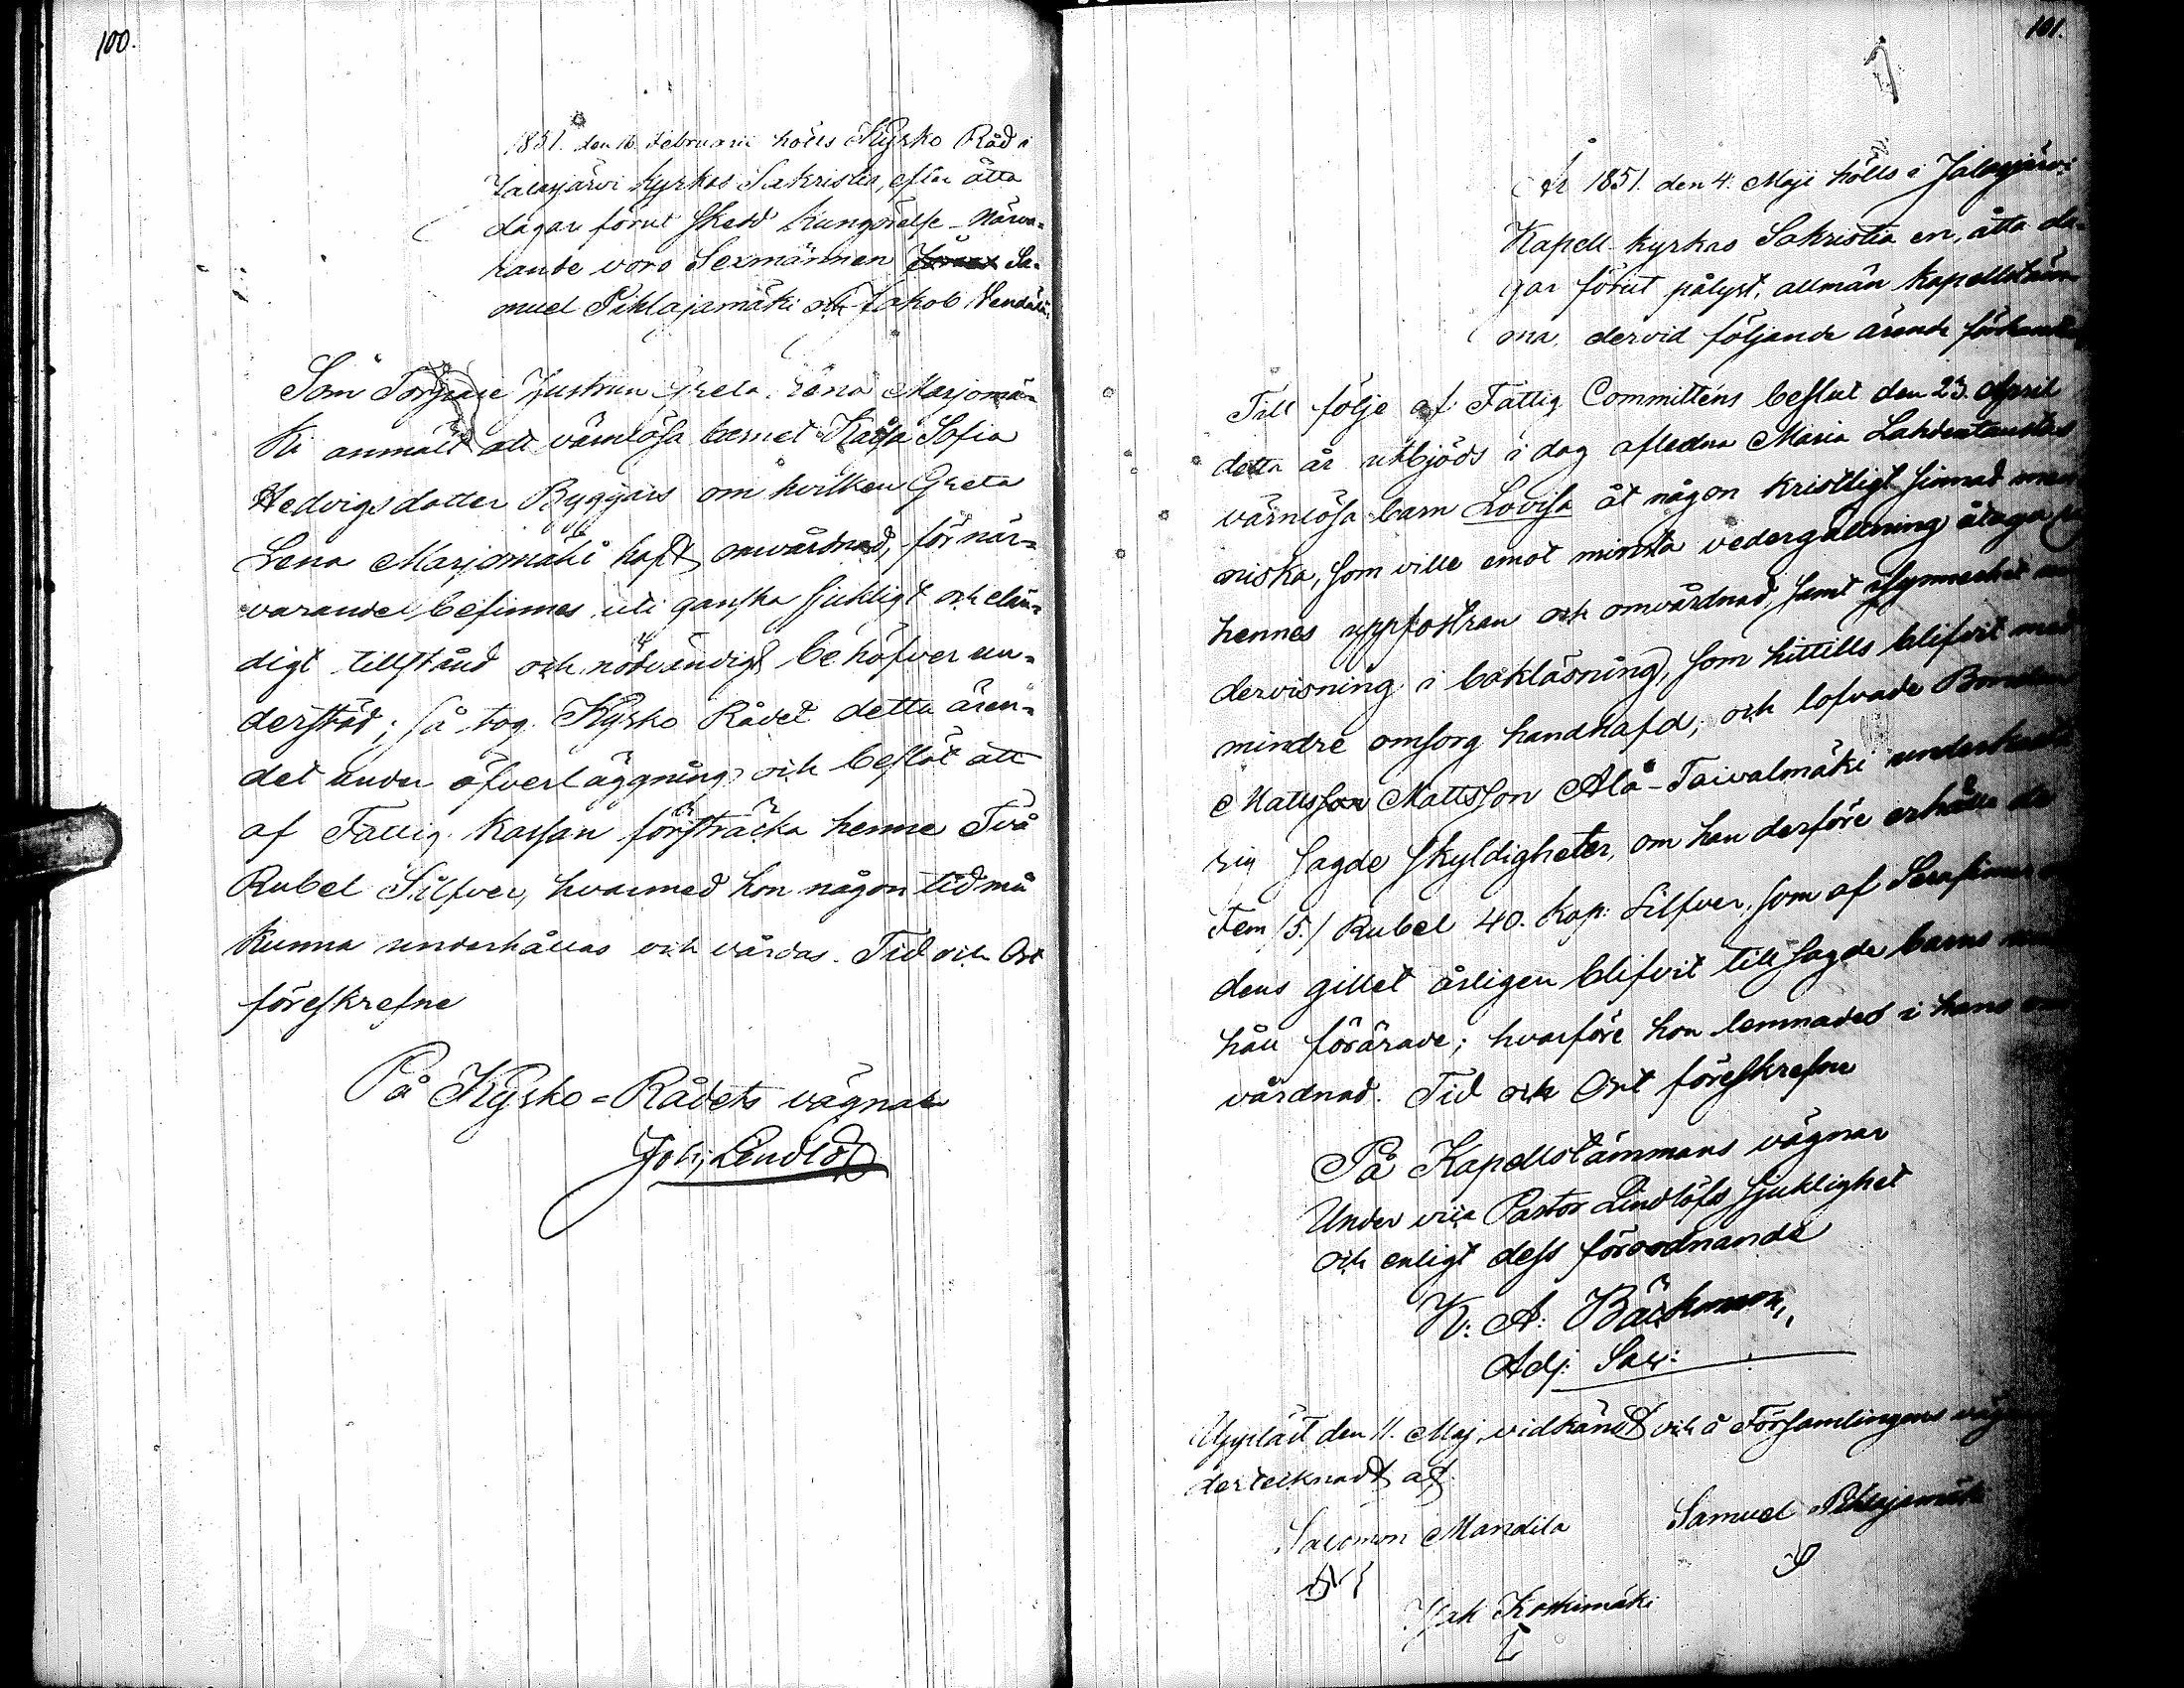 100.
1851. den 16 Februarii hölls Kyrko Råd i
Jalasjärvi kyrkas Sakristia, efter åtta
dagar förut skedd kungörelse. Närva-
rande voro Sexmännen Sa-
muel Pihlajamäki och Jakob
Som Torpare Enkan Greta Lena Marjomä-
ki anmält att värnlösa barnet Kajsa Sofia
Hedvigsdotter Byggars om hvilken Greta
Lena Marjomäki haft omvårdnad, för när-
varande befinnes uti ganska sjukligt och elän-
digt tillstånd och nödvändigt behöfver un-
derstöd; så tog Kyrko Rådet detta ären-
det under öfverläggning och beslöt att
af Fattig kassan försträcka henne Två
Rubel Silfver, hvarmed hon någon tid må
kunna underhållas och vårdas. Tid och Ort
föreskrefne
På Kyrko-Rådets vägnar
Joh; Lindlöf
101.
År 1851. den 4. Maji hölls i Jalasjärvi
Kapell kyrkas Sakristia en, åtta da-
gar förut pålyst, allmän kapellstäm-
ma, dervid följande ärende
Till följe af Fattig Committéns beslut den 23. April
detta år utbjöds i dag aflednа Maria Lahdentaustas
värnlösa barn Lovisa åt någon kristligt sinnad men-
niska, som ville emot minsta vedergällning åtaga sig
hennes uppfostran och omvårdnad, samt isynnerhet un-
dervisning i bokläsning, som hittills blifvit med
mindre omsorg handhafd; och lofvade Bonden
Mattsson Mattsson Ala-Taivalmäki underkasta
sig sagde skyldigheter, om han derföre erhålla de
Fem /5./ Rubel 40. Kop: Silfver, som af Serafimer or-
dens gillet årligen blifvit till sagde barns under-
håll förärade; hvarföre hon lemnades i hans om-
vårdnad. Tid och Ort föreskrefne
På Kapellstämmans vägnar
Under vice Pastor Lindlöfs sjuklighet
och enligt dess förordnande
K: A: Bäckman,
Adj: Sacr:
Uppläst den 11. Maj, vidkändt och å Församlingens
dertecknadt af
Salomon Mandila Samuel Pihlajamäki
Jak Koskimäki